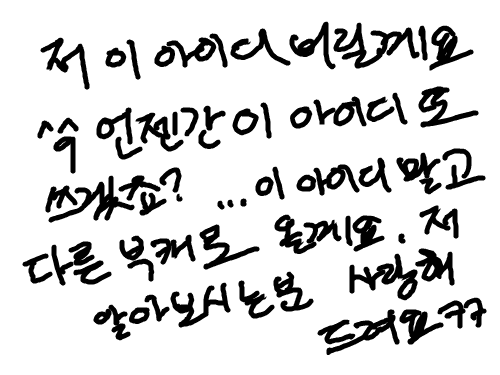 저 이 아이디 버릴게요
ㅆㅋ 언젠간 이 아이디 또
쓰겠죠? ...이 아이디 말고
다른 부캐로 올게요. 저
알아보시는분 사랑해
드려요ㅋㅋ